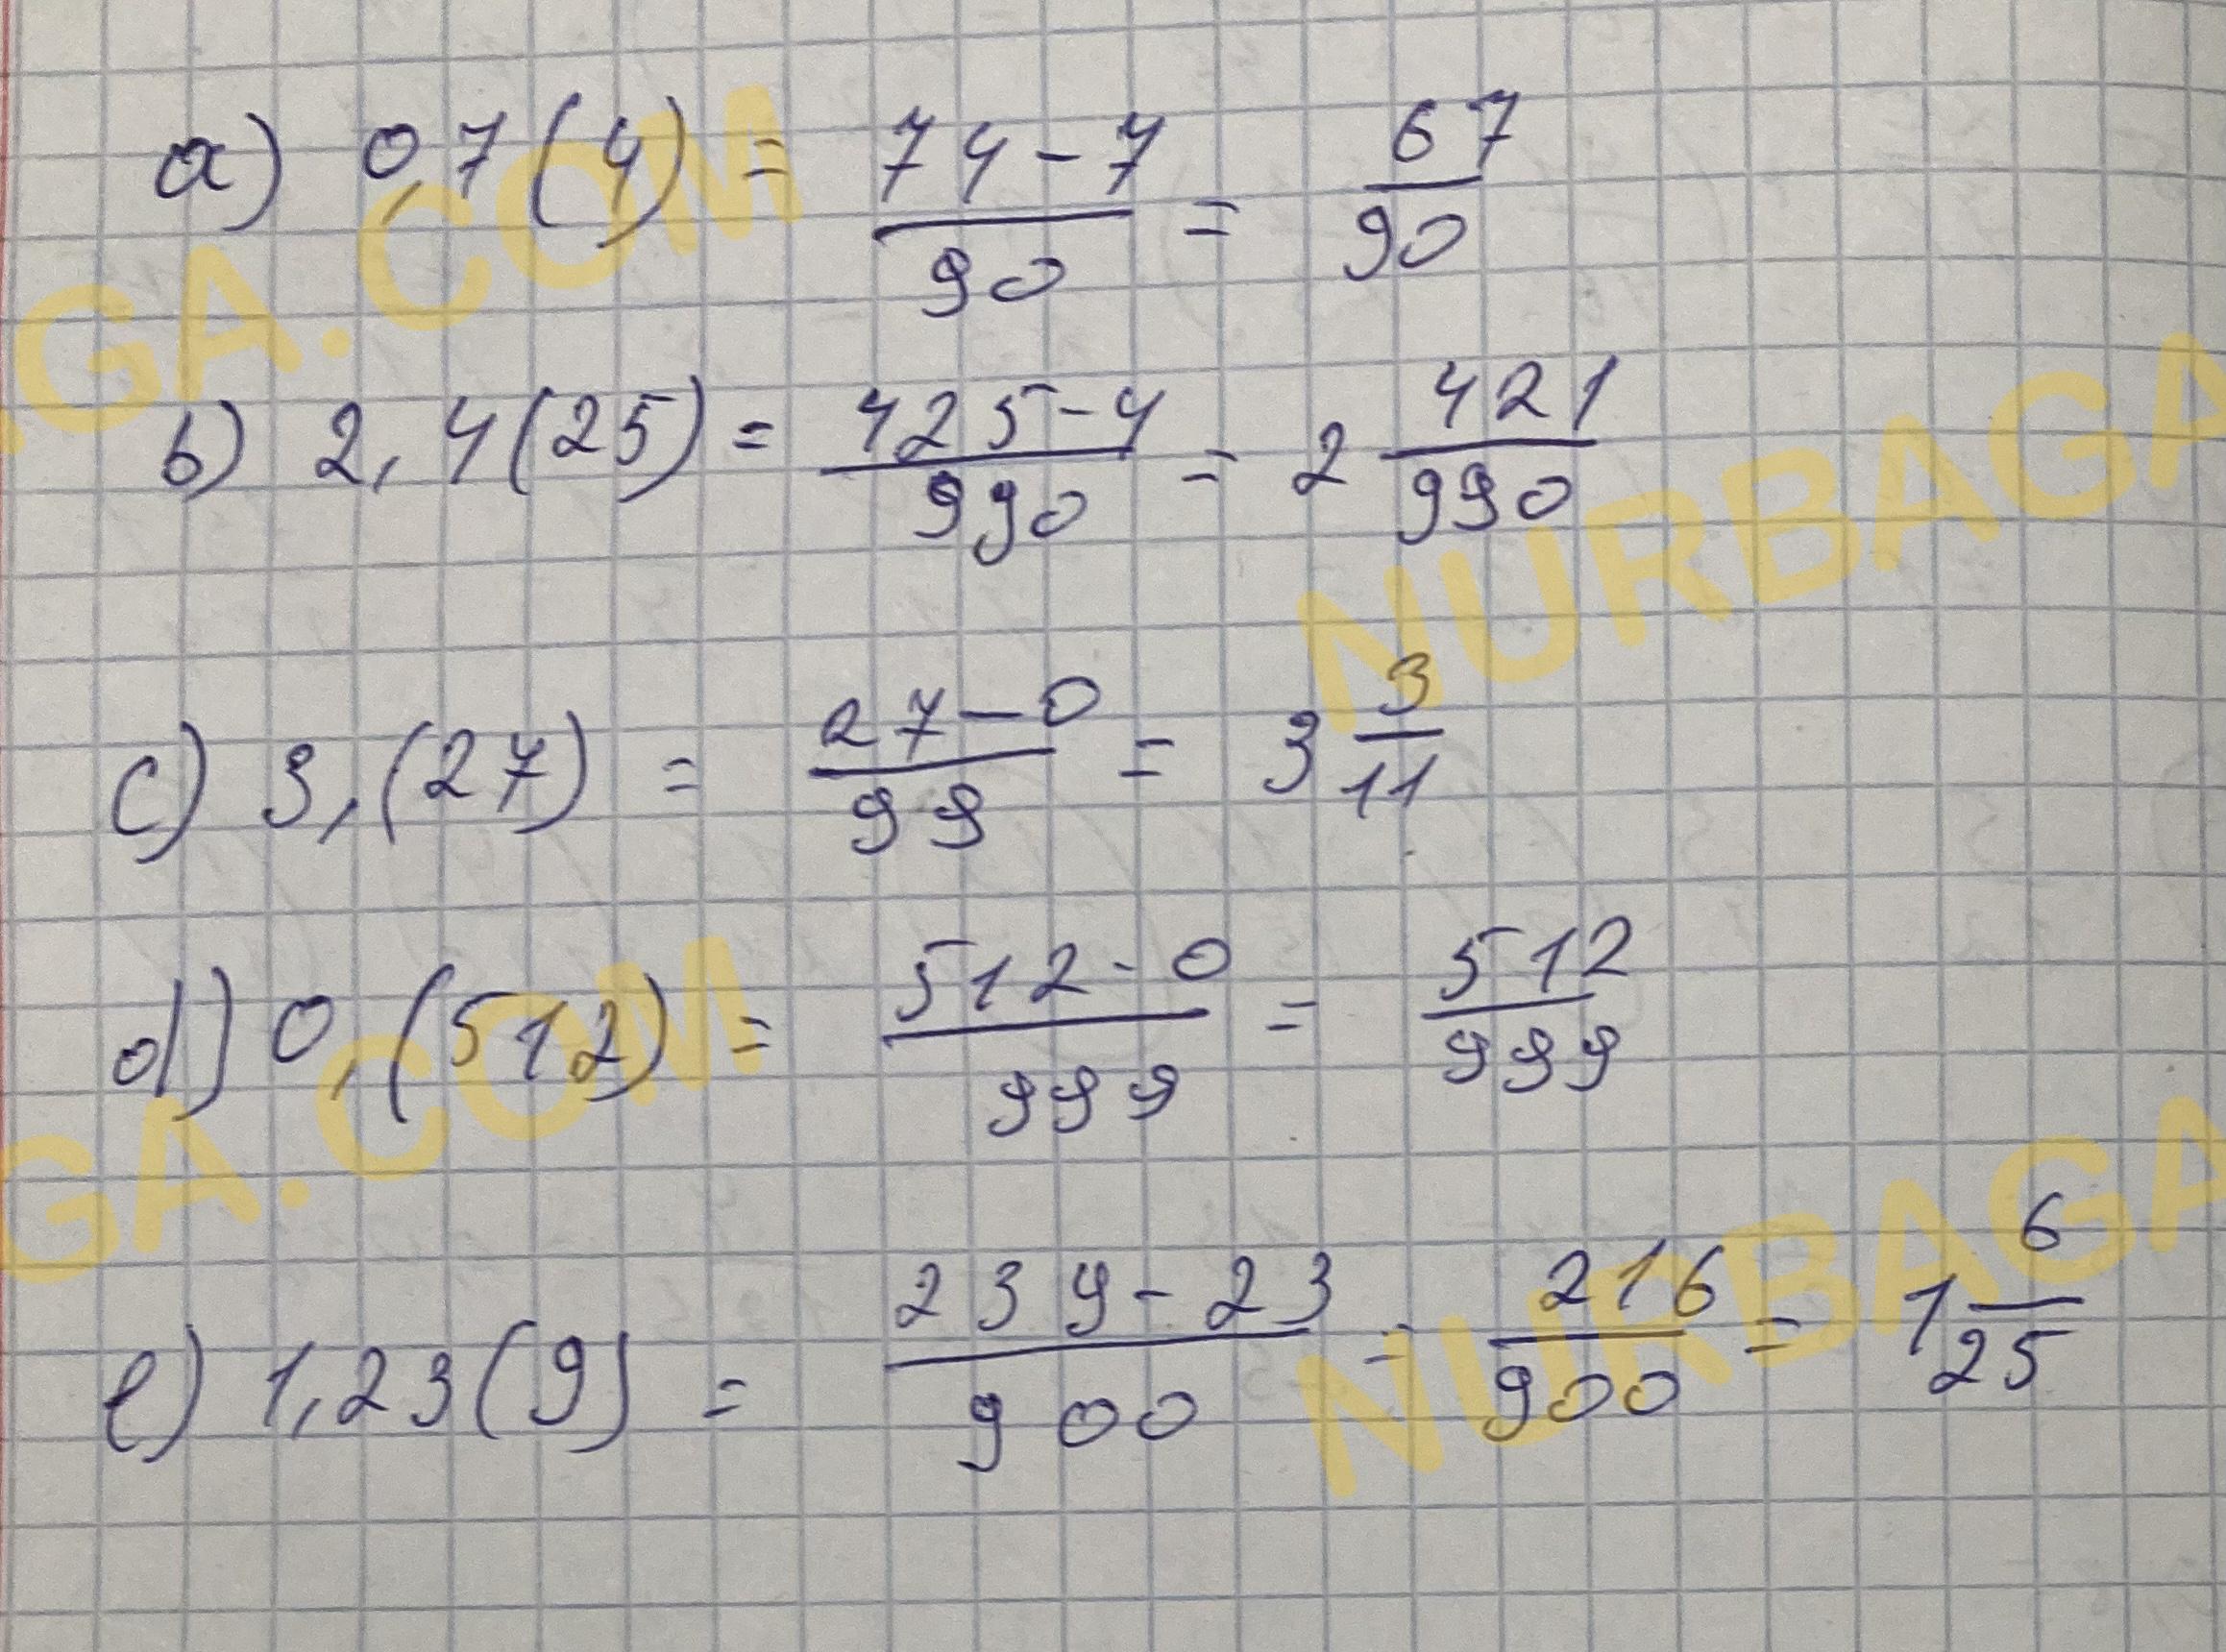 a) 0,7(4) = 74-7/90 = 67/90
b) 2,4(25) = 425-4/990 = 2 421/990
c) 3,(27) = 27-0/99 = 3 3/11
d) 0,(512) = 512-0/999 = 512/999
e) 1,23(9) = 239-23/900 = 216/900 = 1 6/25
GA.COM
NURBAGA
GA.COM
NURBAGA